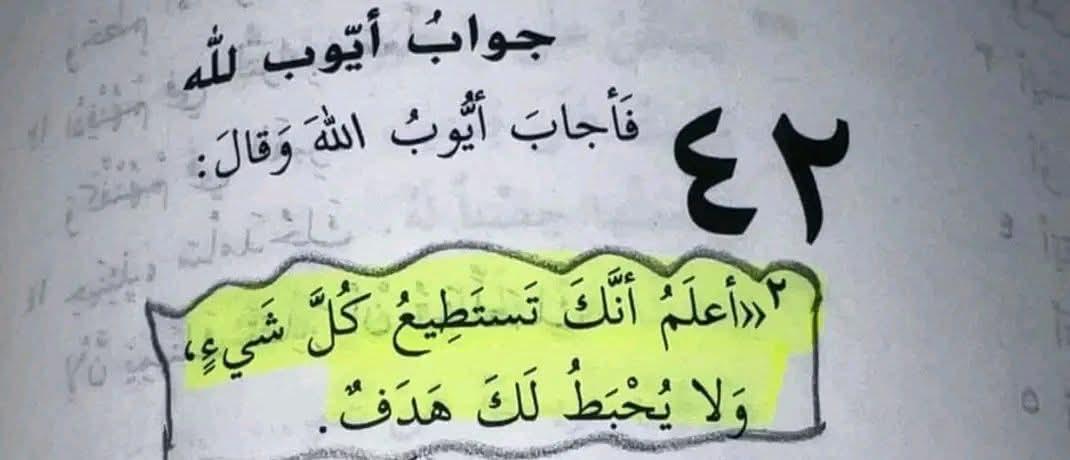 جوابُ أيّوب لله
٤٢ فَأجابَ أيُّوبُ اللهَ وَقالَ:
٢«أعلَمُ أنَّكَ تَستَطِيعُ كُلَّ شَيءٍ،
وَلا يُحْبَطُ لَكَ هَدَفٌ.